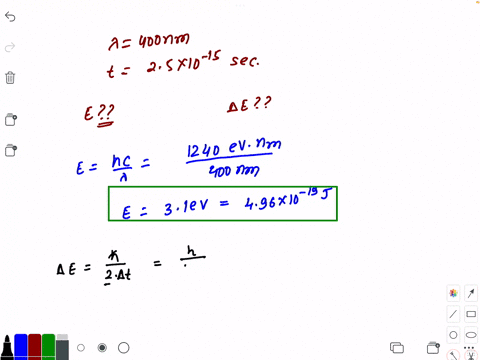 λ = 400nm
t = 2.5×10⁻¹⁵ sec.
E ?? ΔE ??
E = hc/λ = 1240 eV·nm / 400 nm
E = 3.1eV = 4.96×10⁻¹⁹J
ΔE = ℏ/2·Δt = h/